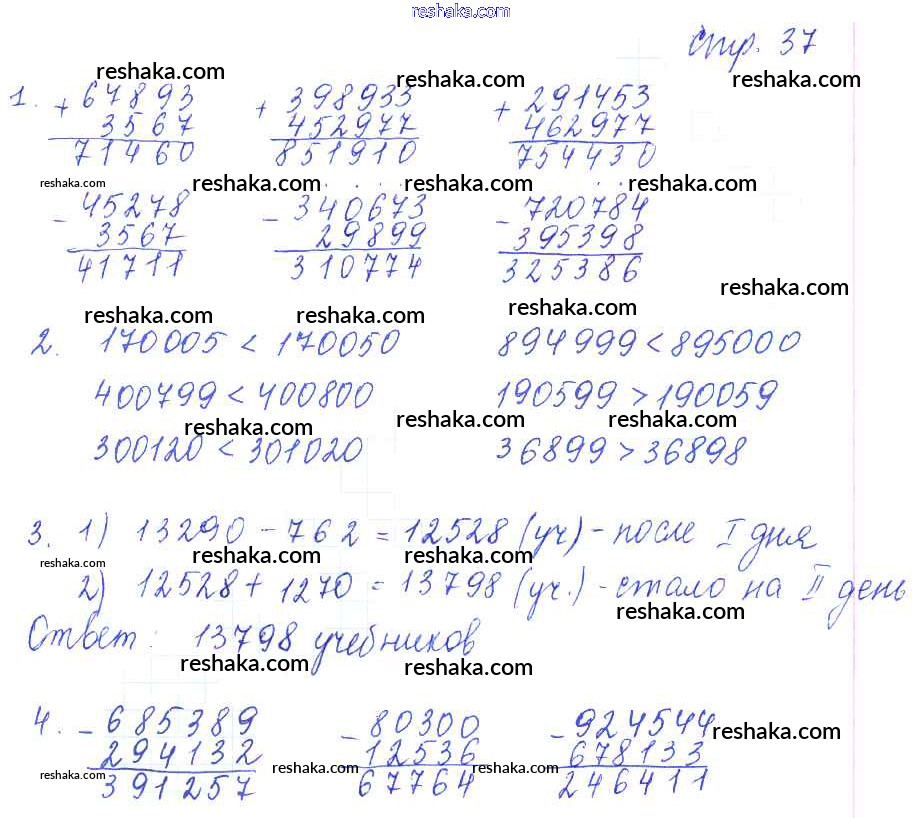 reshaka.com
стр. 37
reshaka.com reshaka.com reshaka.com
1. + 67893 + 398933 + 291453
3567 452977 462977
71460 851910 754430
reshaka.com reshaka.com reshaka.com reshaka.com
- 45278 - 340673 - 720784
3567 29899 395398
41711 310774 325386
reshaka.com
reshaka.com reshaka.com reshaka.com
2. 170005 < 170050 894999 < 895000
400799 < 400800 190599 > 190059
reshaka.com reshaka.com reshaka.com
300120 < 301020 36899 > 36898
3. 1) 13290 - 762 = 12528 (уч) - после I дня
reshaka.com reshaka.com reshaka.com
2) 12528 + 1270 = 13798 (уч.) - стало на II день
reshaka.com
Ответ: 13798 учебников
reshaka.com reshaka.com
4. - 685389 - 80300 - 924544
reshaka.com
294132 12536 678133
reshaka.com reshaka.com reshaka.com
391257 67764 246411